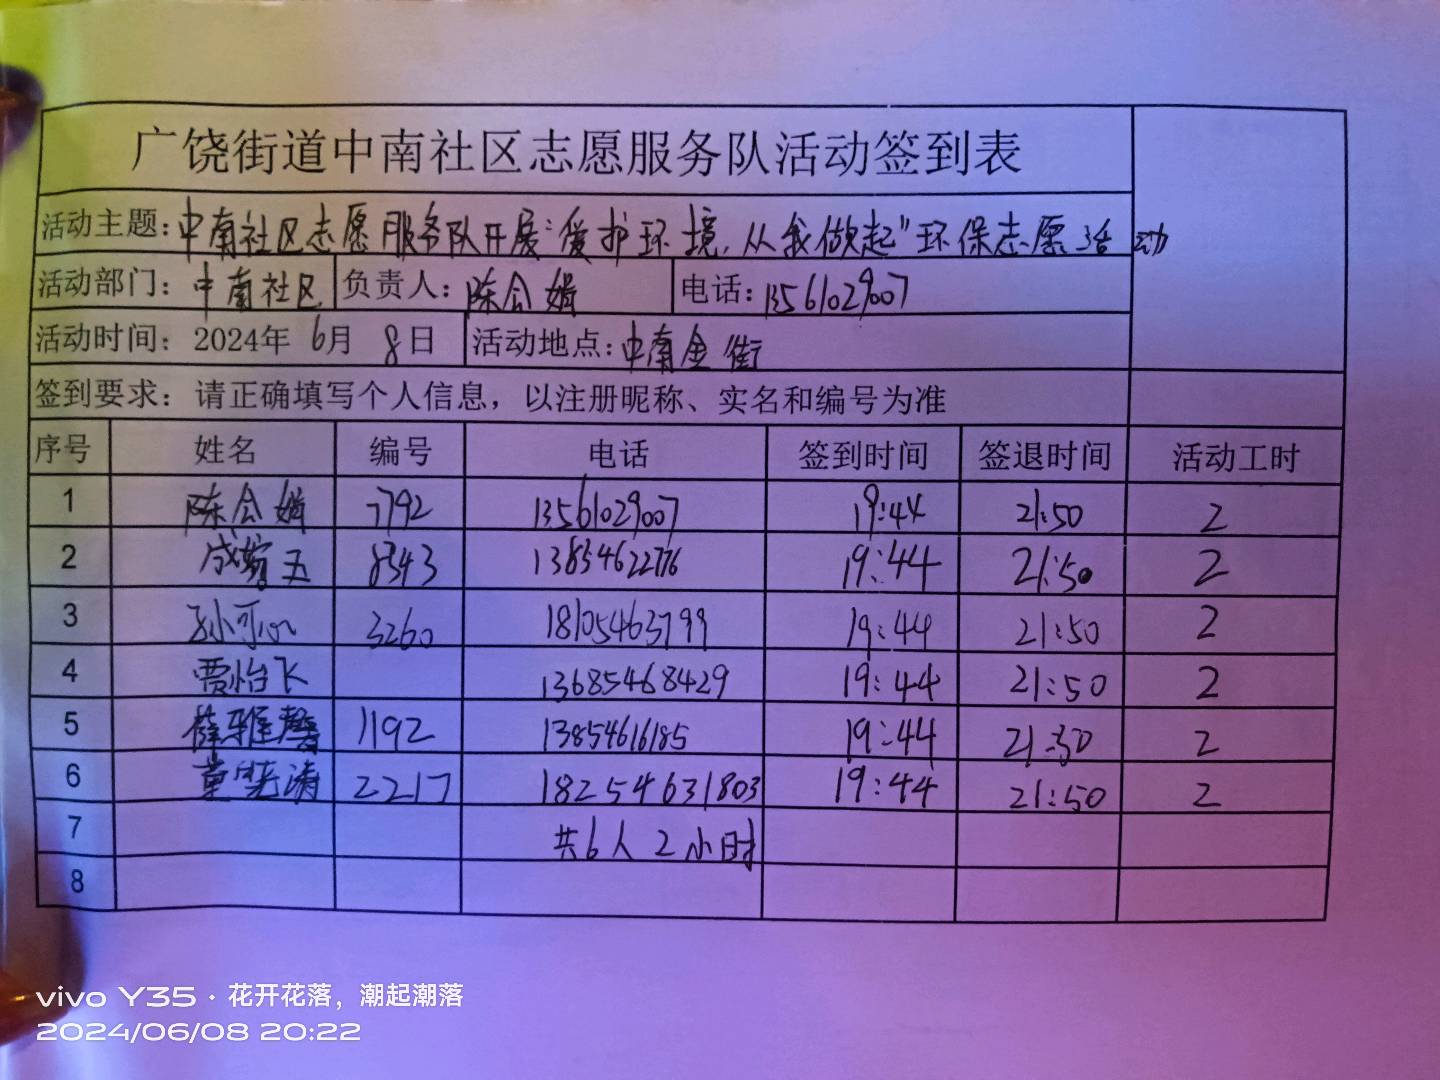 广饶街道中南社区志愿服务队活动签到表
活动主题：中南社区志愿服务队开展“爱护环境，从我做起”环保志愿活动
活动部门：中南社区 负责人：陈会娟 电话：13561029007
活动时间：2024年6月8日 活动地点：中南金街
签到要求：请正确填写个人信息，以注册昵称、实名和编号为准
序号 姓名 编号 电话 签到时间 签退时间 活动工时
1 陈会娟 7792 13561029007 19:44 21:50 2
2 8343 13854622776 19:44 21:50 2
3 孙可心 3260 18105463799 19:44 21:50 2
4 贾怡飞 13685468429 19:44 21:50 2
5 薛雅馨 1192 13854616185 19:44 21:50 2
6 2217 18254631803 19:44 21:50 2
7 共6人 2小时
8
vivo Y35 · 花开花落，潮起潮落
2024/06/08 20:22